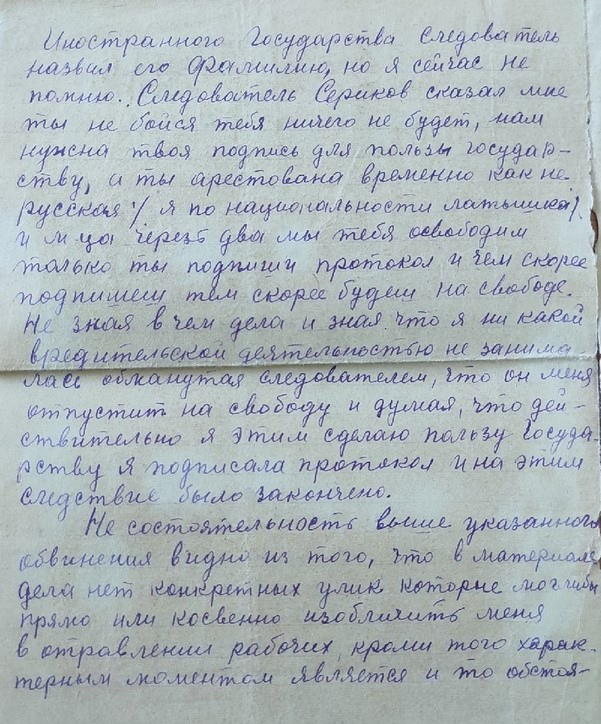 Иностранного Государства следователь
назвал его фамилию, но я сейчас не
помню. Следователь Сериков сказал мне
ты не бойся тебя ничего не будет, нам
нужна твоя подпись для пользы государ-
ству, а ты арестована временно как не
русская :/ я по национальности латышка/.
и м-ца через два мы тебя освободим
только ты подпиши протокол и чем скорее
подпишеш тем скорее будеш на свободе.
Не зная в чем дела и зная что я ни какой
вредительской деятельностью не занима
лась обманутая следователем, что он меня
отпустит на свободу и думая, что дей-
ствительно я этим сделаю пользу Госуда-
рству я подписала протокол и на этим
следствие было закончено.
Не состоятельность выше указанного
обвинения видно из того, что в материале
дела нет конкретных улик которые могли бы
прямо или косвенно изобличить меня
в отравлении рабочих, кроми того харак-
терным моментом является и то обстоя-